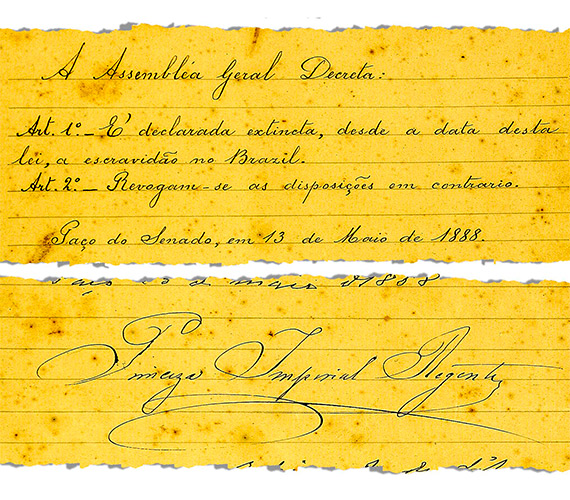 A Assembléa Geral Decreta:
Art. 1º.— E' declarada extincta, desde a data desta
lei, a escravidão no Brazil.
Art. 2º.— Revogam-se as disposições em contrario.
Paço do Senado, em 13 de Maio de 1888.
de maio 1888
Princeza Imperial Regente